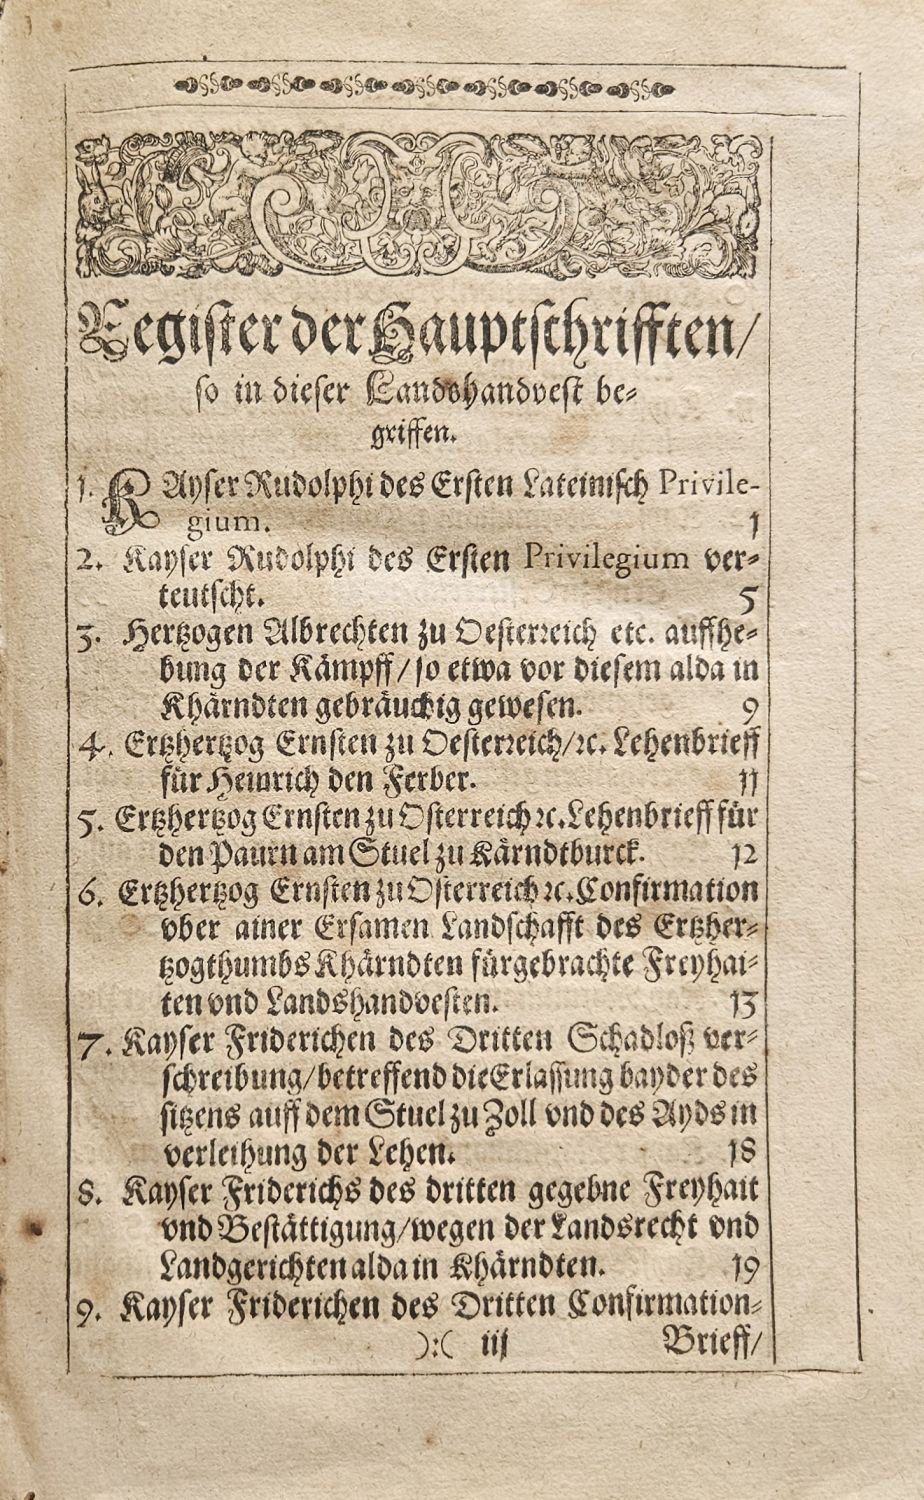 Register der Hauptschrifften/
so in dieser Landshandvest be-
griffen.
1. KAyser Rudolphi des Ersten Lateinisch Privile-
gium. 1
2. Kayser Rudolphi des Ersten Privilegium ver-
teutscht. 5
3. Hertzogen Albrechten zu Oesterreich etc. auffhe-
bung der Kämpff/so etwa vor diesem alda in
Khärndten gebräuchig gewesen. 9
4. Ertzhertzog Ernsten zu Oesterreich/ꝛc. Lehenbrieff
für Heinrich den Ferber. 11
5. Ertzhertzog Ernsten zu Osterreich ꝛc. Lehenbrieff für
den Paurn am Stuel zu Kärndtburck. 12
6. Ertzhertzog Ernsten zu Osterreich ꝛc. Confirmation
vber ainer Ersamen Landschafft des Ertzher-
tzogthumbs Khärndten fürgebrachte Freyhai-
ten vnd Landshandvesten. 13
7. Kayser Friderichen des Dritten Schadloß ver-
schreibung/betreffend die Erlassung bayder des
sitzens auff dem Stuel zu Zoll vnd des Ayds in
verleihung der Lehen. 18
8. Kayser Friderichs des dritten gegebne Freyhait
vnd Bestättigung/wegen der Landsrecht vnd
Landgerichten alda in Khärndten. 19
9. Kayser Friderichen des Dritten Confirmation-
):( iij Brieff/